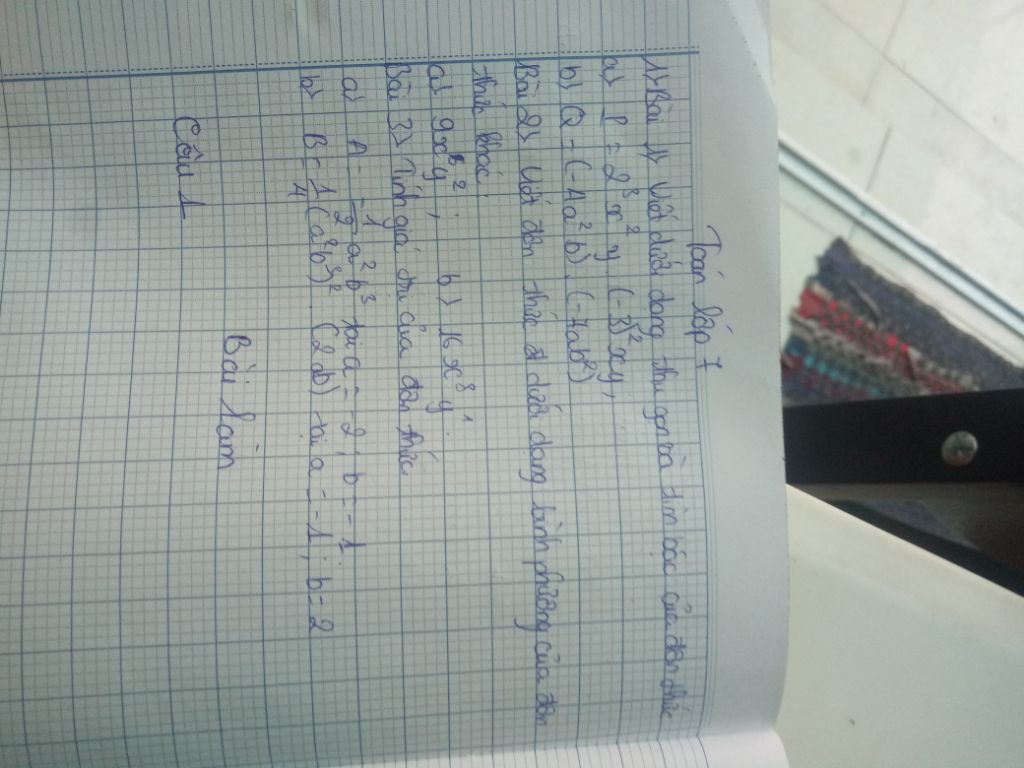 Toán lớp 7
1) Bài 1) Viết dưới dạng thu gọn và tìm bậc của đơn thức
a) P = 2³x²y (-3)²xy;
b) Q = (-1a²b) . (-4ab²)
Bài 2) Viết đơn thức dưới dạng bình phương của đơn
thức khác
a) 9x²y²; b) 16x⁸y⁴.
Bài 3) Tính giá trị của đơn thức
a) A = -1/2 a²b³ tại a = -2; b = -1
b) B = 1/4 (a²b³)² (2b) tại a = -1; b = 2
Bài làm
Câu 1